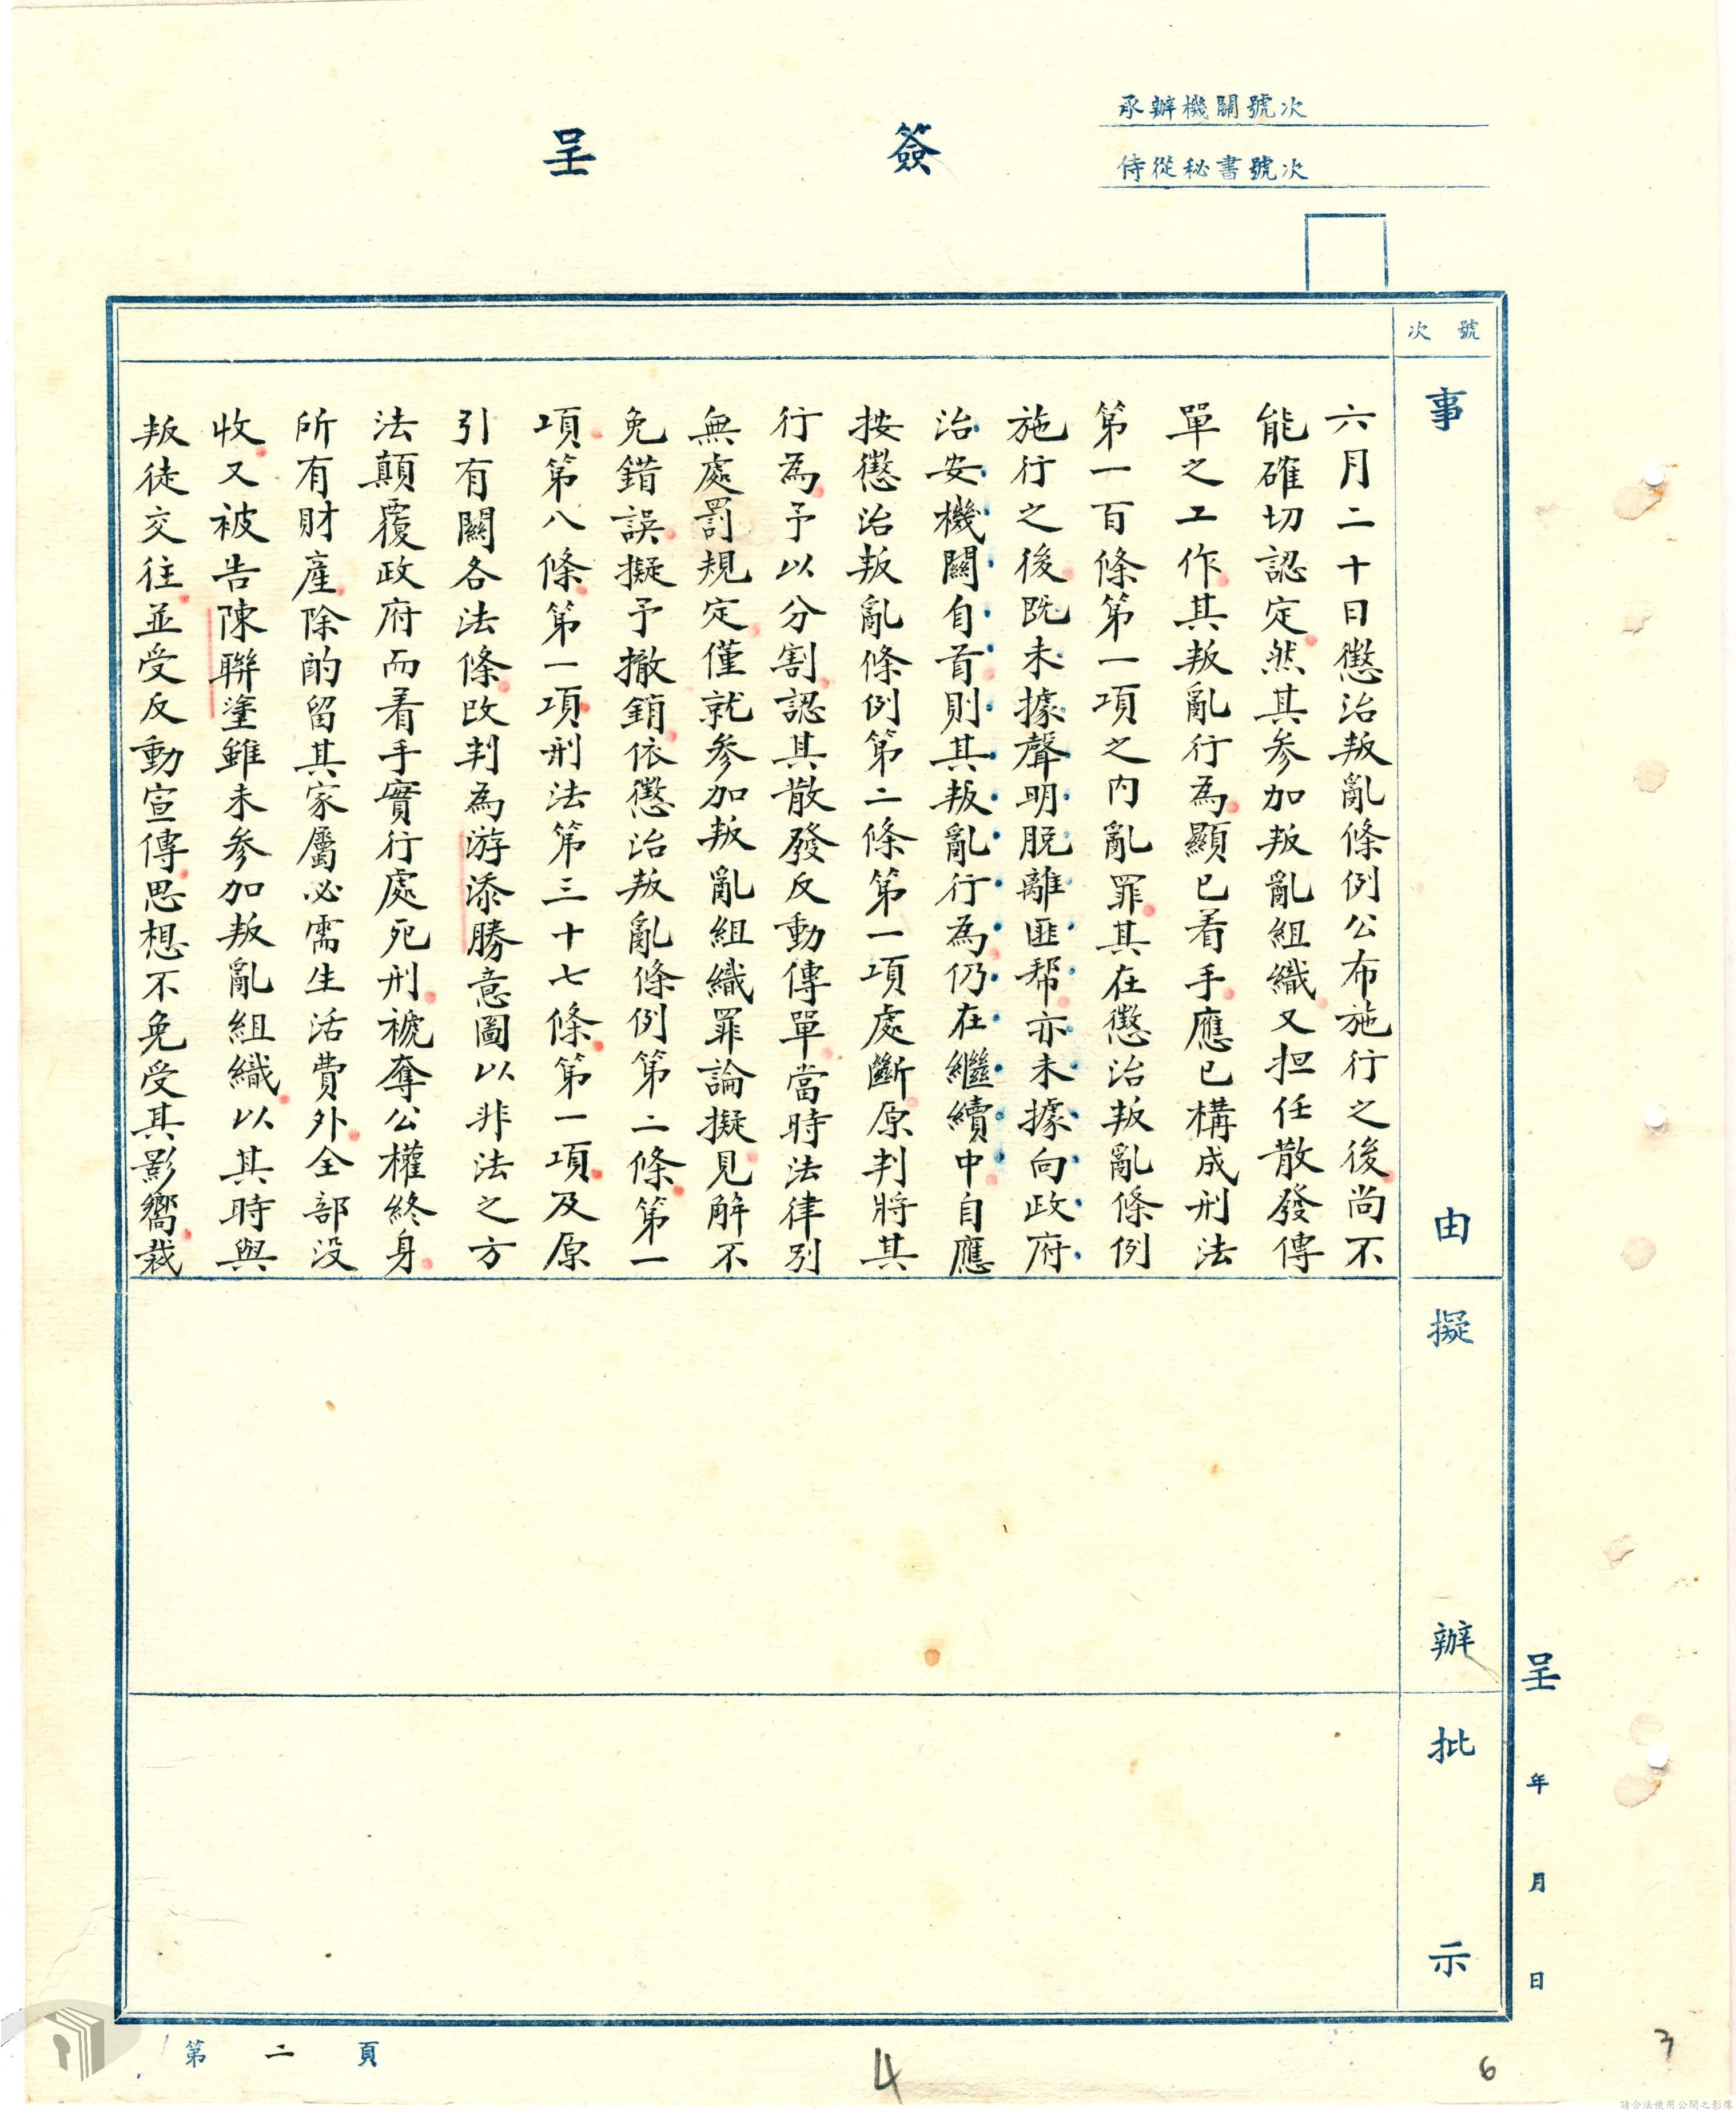 承辦機關號次
侍從秘書號次
簽呈
號次
事由
擬辦
批示
六月二十日懲治叛亂條例公布施行之後尚不
能確切認定然其參加叛亂組織又担任散發傳
單之工作其叛亂行為顯已着手應已構成刑法
第一百條第一項之內亂罪其在懲治叛亂條例
施行之後既未據聲明脫離匪幫亦未據向政府
治安機關自首則其叛亂行為仍在繼續中自應
按懲治叛亂條例第二條第一項處斷原判將其
行為予以分割認其散發反動傳單當時法律別
無處罰規定僅就參加叛亂組織罪論擬見解不
免錯誤擬予撤銷依懲治叛亂條例第二條第一
項第八條第一項刑法第三十七條第一項及原
引有關各法條改判為游添勝意圖以非法之方
法顛覆政府而着手實行處死刑褫奪公權終身
所有財產除酌留其家屬必需生活費外全部沒
收又被告陳聯塗雖未參加叛亂組織以其時與
叛徒交往並受反動宣傳思想不免受其影嚮裁
呈 年 月 日
第二頁
4
6
3
請合法使用公開之影像